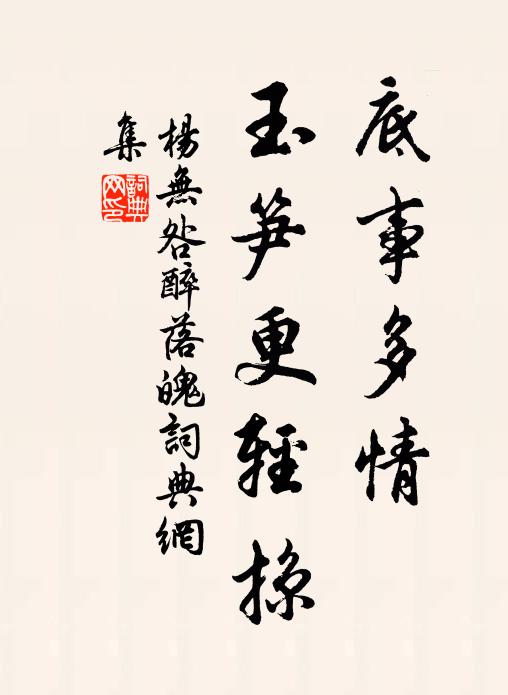 底事多情
玉笋更輕掠
楊無咎醉落魄詞典網
集
詞典網印